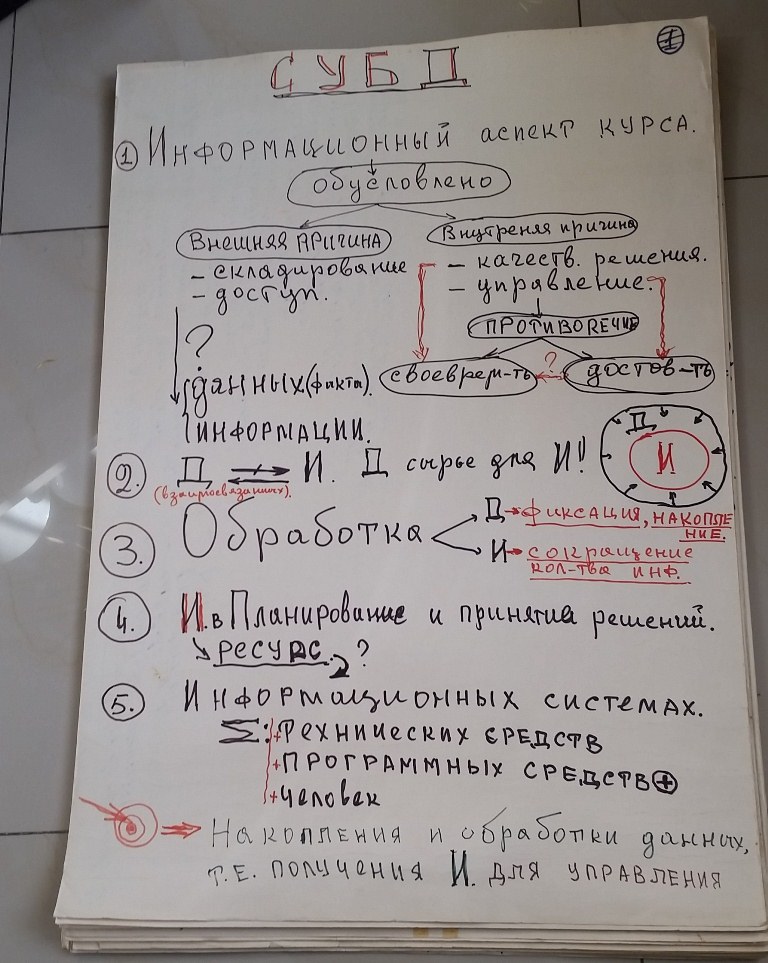 1
СУБД
1 Информационный аспект курса.
обусловлено
Внешняя причина
Внутреняя причина
- складирование
- доступ.
- качеств. решения.
- управление.
противоречие
?
данных (факты).
информации.
своеврем-ть ? достов-ть
2. Д ⇄ И. Д сырье для И!
(взаимосвязанных).
Д
И
3. Обработка
Д → фиксация, накопле
ние.
И → сокращение
кол-тва инф.
4. И. в Планирование и принятия решений.
ресурс. ?
5. Информационных системах.
Σ: + технических средств
+ программных средств +
+ человек
⇒ Накопления и обработки данных,
т.е. получения И. для управления